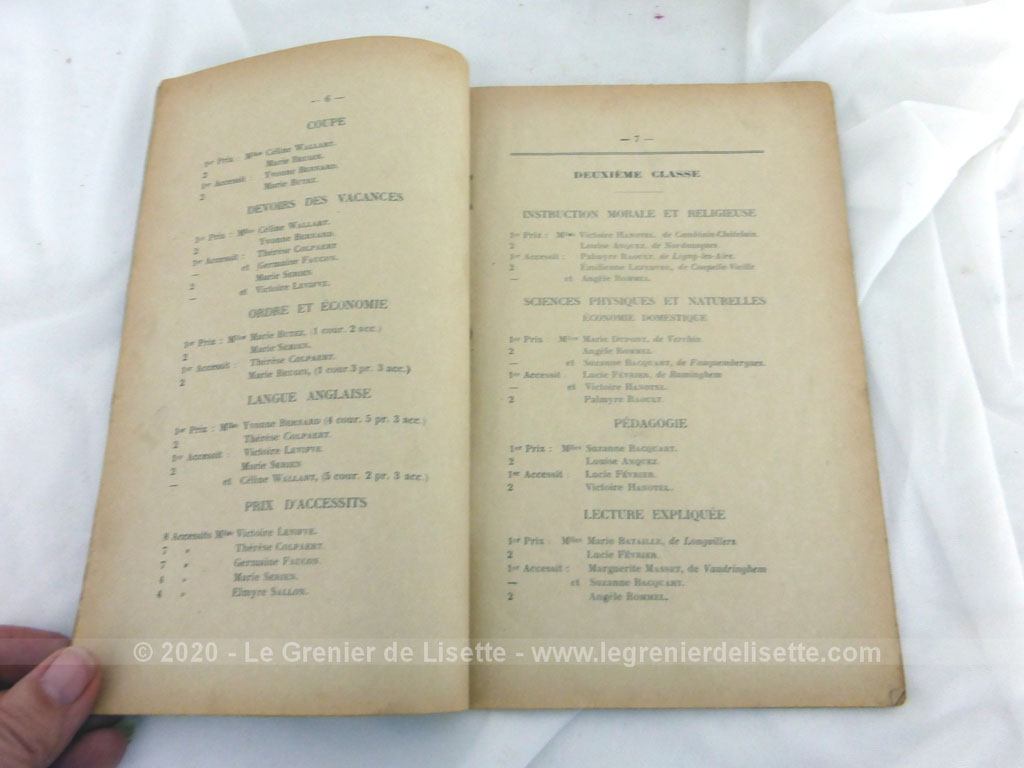 — 6 —
COUPE
1er Prix : Mlles Céline WALLART.
2 Marie BEUGIN.
1er Accessit : Yvonne BERNARD.
2 Marie BUTEZ.
DEVOIRS DES VACANCES
1er Prix : Mlles Céline WALLART.
2 Yvonne BERNARD.
1er Accessit : Thérèse COLPAERT
— et Germaine FAUCON.
2 Marie SERIEN
— et Victoire LENIFVE.
ORDRE ET ÉCONOMIE
1er Prix : Mlles Marie BUTEZ, (1 cour. 2 acc.)
2 Marie SERIEN.
1er Accessit : Thérèse COLPAERT.
2 Marie BEUGIN, (1 cour. 3 pr. 3 acc.)
LANGUE ANGLAISE
1er Prix : Mlles Yvonne BERNARD (4 cour. 5 pr. 3 acc.)
2 Thérèse COLPAERT.
1er Accessit : Victoire LENIFVE
2 Marie SERIEN
— et Céline WALLART, (5 cour. 2 pr. 3 acc.)
PRIX D'ACCESSITS
8 Accessits Mlles Victoire LENIFVE.
7 » Thérèse COLPAERT.
7 » Germaine FAUCON.
4 » Marie SERIEN.
4 » Elmyre SALLON.
— 7 —
DEUXIÈME CLASSE
INSTRUCTION MORALE ET RELIGIEUSE
1er Prix : Mlles Victoire HANOTEL, de Camblain-Châtelain.
2 Louise ANQUEZ, de Nordausques.
1er Accessit : Palmyre RAOULT, de Ligny-les-Aire.
2 Émilienne LEFEBVRE, de Coupelle-Vieille
— et Angèle ROMMEL.
SCIENCES PHYSIQUES ET NATURELLES
ÉCONOMIE DOMESTIQUE
1er Prix : Mlles Marie DUPONT, de Verchin.
2 Angèle ROMMEL
— et Suzanne BACQUART, de Fauquembergues.
1er Accessit : Lucie FÉVRIER, de Ruminghem
— et Victoire HANOTEL
2 Palmyre RAOULT.
PÉDAGOGIE
1er Prix : Mlles Suzanne BACQUART.
2 Louise ANQUEZ.
1er Accessit : Lucie FÉVRIER.
2 Victoire HANOTEL.
LECTURE EXPLIQUÉE
1er Prix : Mlles Marie BATAILLE, de Longvillers.
2 Lucie FÉVRIER.
1er Accessit : Marguerite MASSET, de Vaudringhem
— et Suzanne BACQUART.
2 Angèle ROMMEL.
© 2020 - Le Grenier de Lisette - www.legrenierdelisette.com